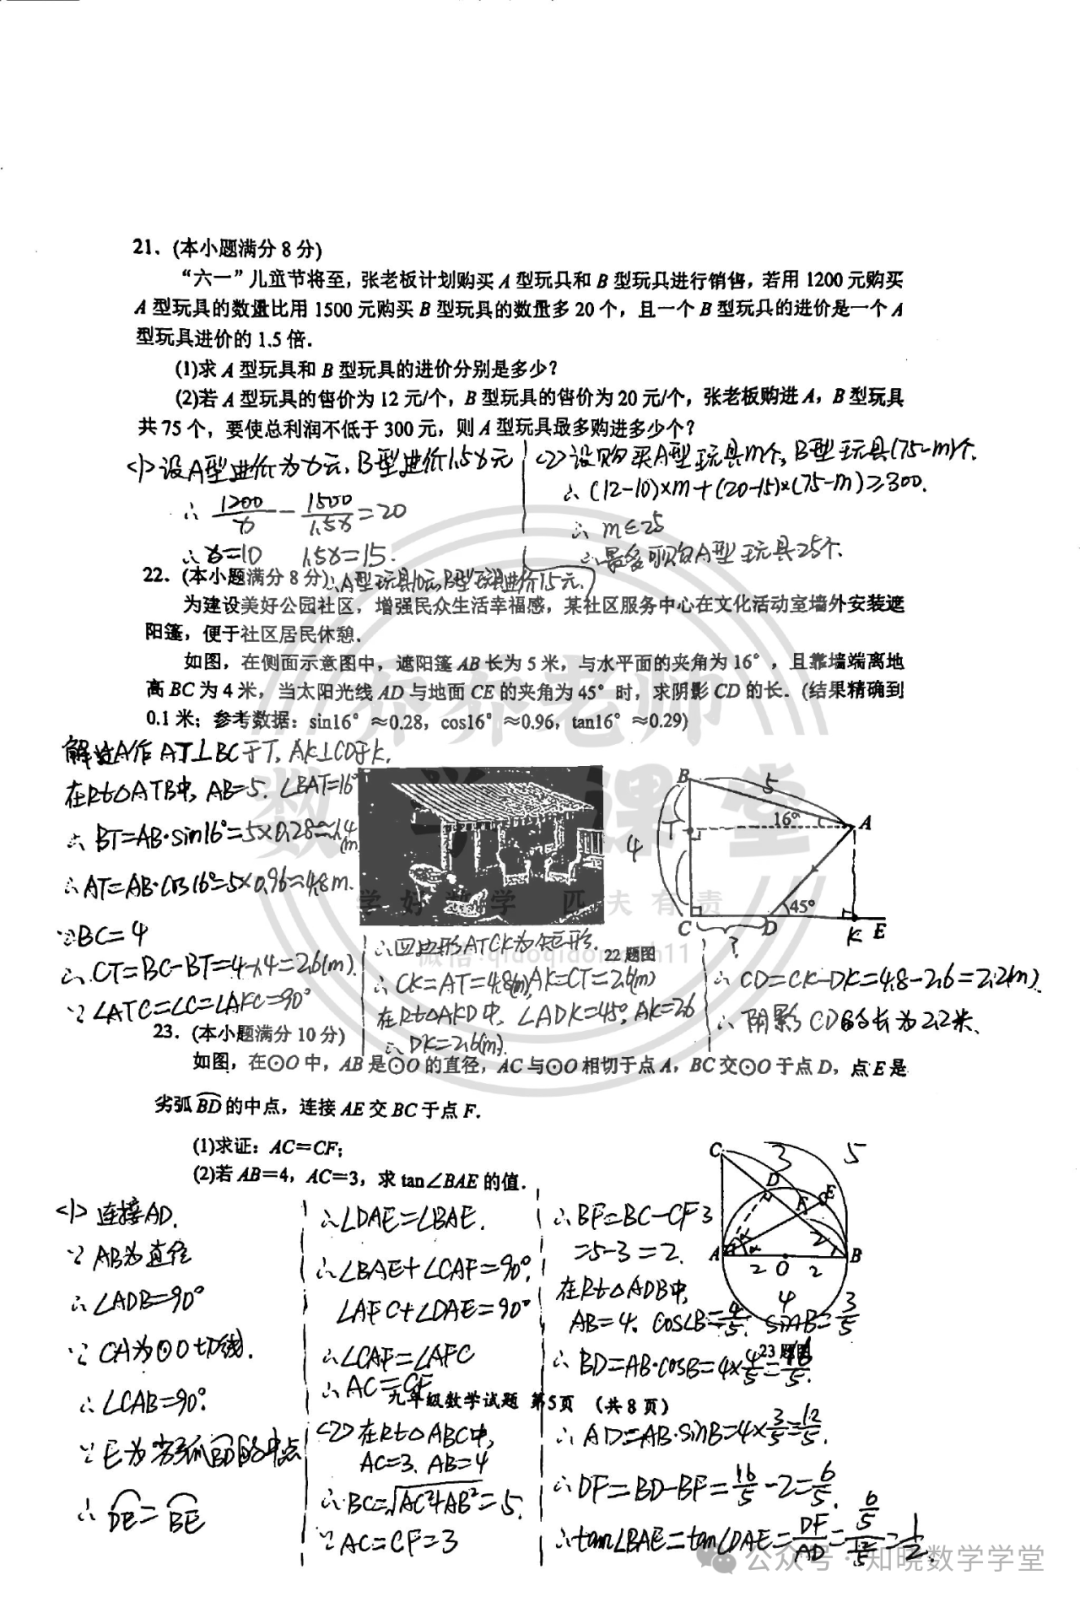 21. (本小题满分 8 分)
“六一”儿童节将至，张老板计划购买 A 型玩具和 B 型玩具进行销售，若用 1200 元购买
A 型玩具的数量比用 1500 元购买 B 型玩具的数量多 20 个，且一个 B 型玩具的进价是一个 A
型玩具进价的 1.5 倍.
(1)求 A 型玩具和 B 型玩具的进价分别是多少?
(2)若 A 型玩具的售价为 12 元/个，B 型玩具的售价为 20 元/个，张老板购进 A，B 型玩具
共 75 个，要使总利润不低于 300 元，则 A 型玩具最多购进多少个?
<1> 设A型进价为x元, B型进价1.5x元
∴ 1200/x - 1500/1.5x = 20
∴ x=10 1.5x=15.
∴A型玩具10元,B型玩具进价15元.
<2> 设购买A型玩具m个, B型玩具(75-m)个.
∴ (12-10)×m+(20-15)×(75-m)≥300.
∴ m≤25
∴最多可购A型玩具25个.
22. (本小题满分 8 分)
为建设美好公园社区，增强民众生活幸福感，某社区服务中心在文化活动室墙外安装遮
阳篷，便于社区居民休憩.
如图，在侧面示意图中，遮阳篷 AB 长为 5 米，与水平面的夹角为 16°，且靠墙端离地
高 BC 为 4 米，当太阳光线 AD 与地面 CE 的夹角为 45° 时，求阴影 CD 的长. (结果精确到
0.1 米；参考数据：sin16°≈0.28，cos16°≈0.96，tan16°≈0.29)
解:过A作 AT⊥BC于T, AK⊥CD于K.
在Rt△ATB中, AB=5. ∠BAT=16°
∴ BT=AB·sin16°=5×0.28≈1.4(m)
∴ AT=AB·cos16°=5×0.96≈4.8m.
∵BC=4
∴ CT=BC-BT=4-1.4=2.6(m)
∵∠ATC=∠C=∠AKC=90°
∴四边形ATCK为矩形.
∴ CK=AT=4.8(m) AK=CT=2.6(m)
在Rt△AKD中, ∠ADK=45°, AK=2.6
∴ DK=2.6(m).
∴ CD=CK-DK=4.8-2.6=2.2(m).
∴ 阴影CD的长为2.2米.
B 5
T 16° A
4
45°
C D K E
?
22 题图
乔乔老师
数学课堂
学好数学 匹夫有责
23. (本小题满分 10 分)
如图，在⊙O 中，AB 是⊙O 的直径，AC 与⊙O 相切于点 A，BC 交⊙O 于点 D，点 E 是
劣弧 BD 的中点，连接 AE 交 BC 于点 F.
(1)求证：AC=CF;
(2)若 AB=4，AC=3，求 tan∠BAE 的值.
<1> 连接AD.
∵ AB为直径
∴ ∠ADB=90°
∵ CA为⊙O切线.
∴ ∠CAB=90°.
∵ E为劣弧BD的中点
∴ DE=BE
∴∠DAE=∠BAE.
∴∠BAE+∠CAF=90°.
∠AFC+∠DAE=90°
∴∠CAF=∠AFC
∴ AC=CF
<2> 在Rt△ABC中,
AC=3. AB=4
∴ BC=√AC²+AB²=5.
∵ AC=CF=3
∴ BF=BC-CF
=5-3=2.
在Rt△ADB中,
AB=4. cos∠B=4/5. sin∠B=3/5
∴ BD=AB·cosB=4×4/5=16/5.
∴ AD=AB·sinB=4×3/5=12/5.
∴ DF=BD-BF=16/5-2=6/5.
∴tan∠BAE=tan∠DAE=DF/AD=6/5/12/5=1/2.
C 3 5
D F E
3 2
A 2 O 2 B
4
23 题图
九年级数学试题 第5页 （共 8 页）
公众号·知晓数学学堂